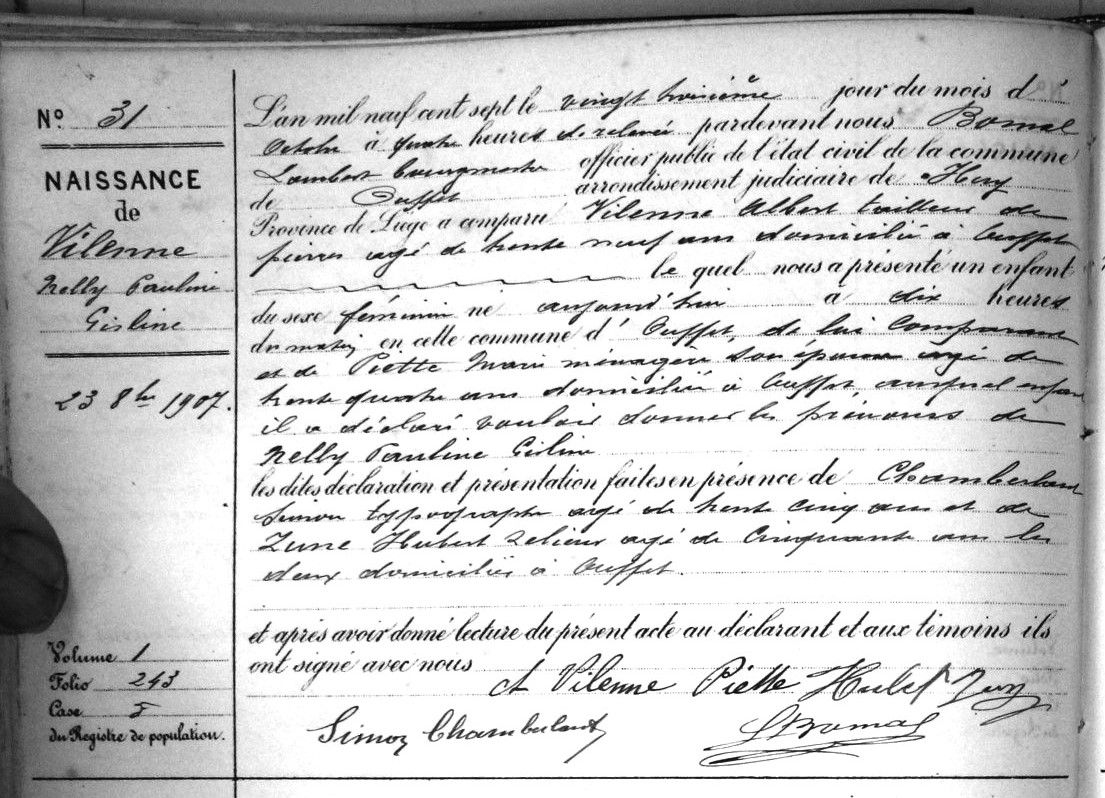 N° 31
NAISSANCE
de
Vilenne
Nelly Pauline
Gisline
23 8bre 1907.
Volume 1
Folio 243
Case 5
du Registre de population.
L'an mil neuf cent sept le vingt troisième jour du mois d'
Octobre à quatre heures de relevée pardevant nous Bomal
Lambert bourgmestre officier public de l'état civil de la commune
de Ouffet arrondissement judiciaire de Huy
Province de Liège a comparu Vilenne Albert tailleur de
pierres agé de trente neuf ans domicilié à Ouffet
le quel nous a présenté un enfant
du sexe féminin né aujourd'hui à dix heures
du matin en cette commune d'Ouffet, de lui Comparant
et de Piette Marie ménagère son épouse agé de
trente quatre ans domiciliée à Ouffet, auquel enfant
il a déclaré vouloir donner les prénoms de
Nelly Pauline Gisline
les dites déclaration et présentation faites en présence de Chamberlant
Simon typographe agé de trente cinq ans et de
Zune Hubert relieur agé de Cinquante ans les
deux domiciliés à Ouffet.
et après avoir donné lecture du présent acte au déclarant et aux témoins ils
ont signé avec nous
A Vilenne Piette Hubert
Simon Chamberlant LBomal